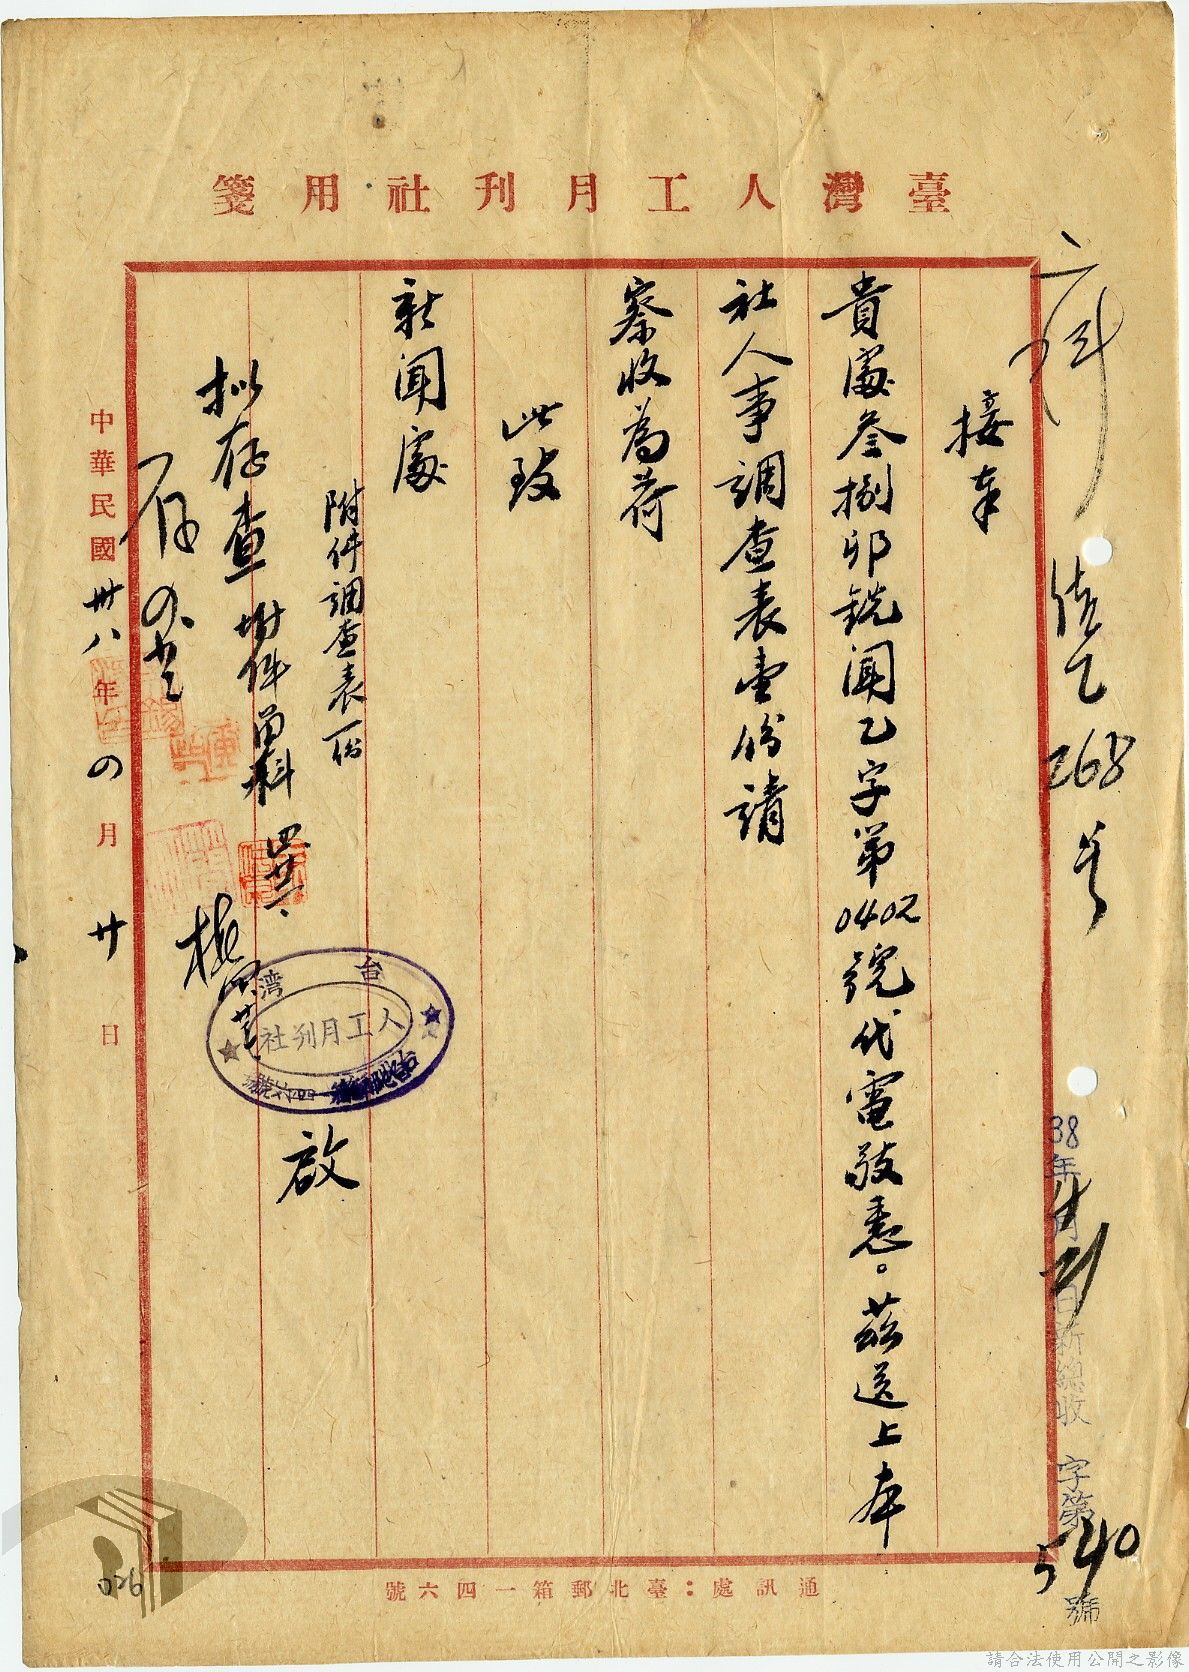 臺灣人工月刊社用箋
接奉
貴處叁捌卯銑聞乙字第0402號代電敬悉。茲送上本
社人事調查表壹份請
察收為荷
此致
新聞處
附件調查表一份
台灣
人工月刊社
啟
拟存查 附件留科
中華民國卅八年四月廿日
通訊處：臺北郵箱一四六號
268號
38年4月21日新總收字第540號
026
請合法使用公開之影像